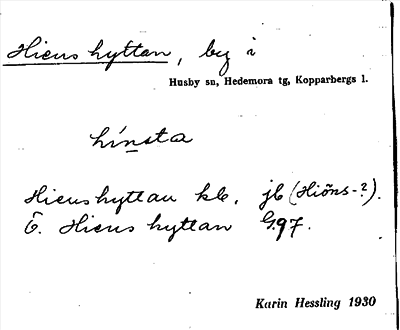 Hienshyttan, by i
Husby sn, Hedemora tg, Kopparbergs l.
hínsta
Hienshyttan kb, jb (Hiöns-?).
Ö. Hienshyttan G97.
Karin Hessling 1930